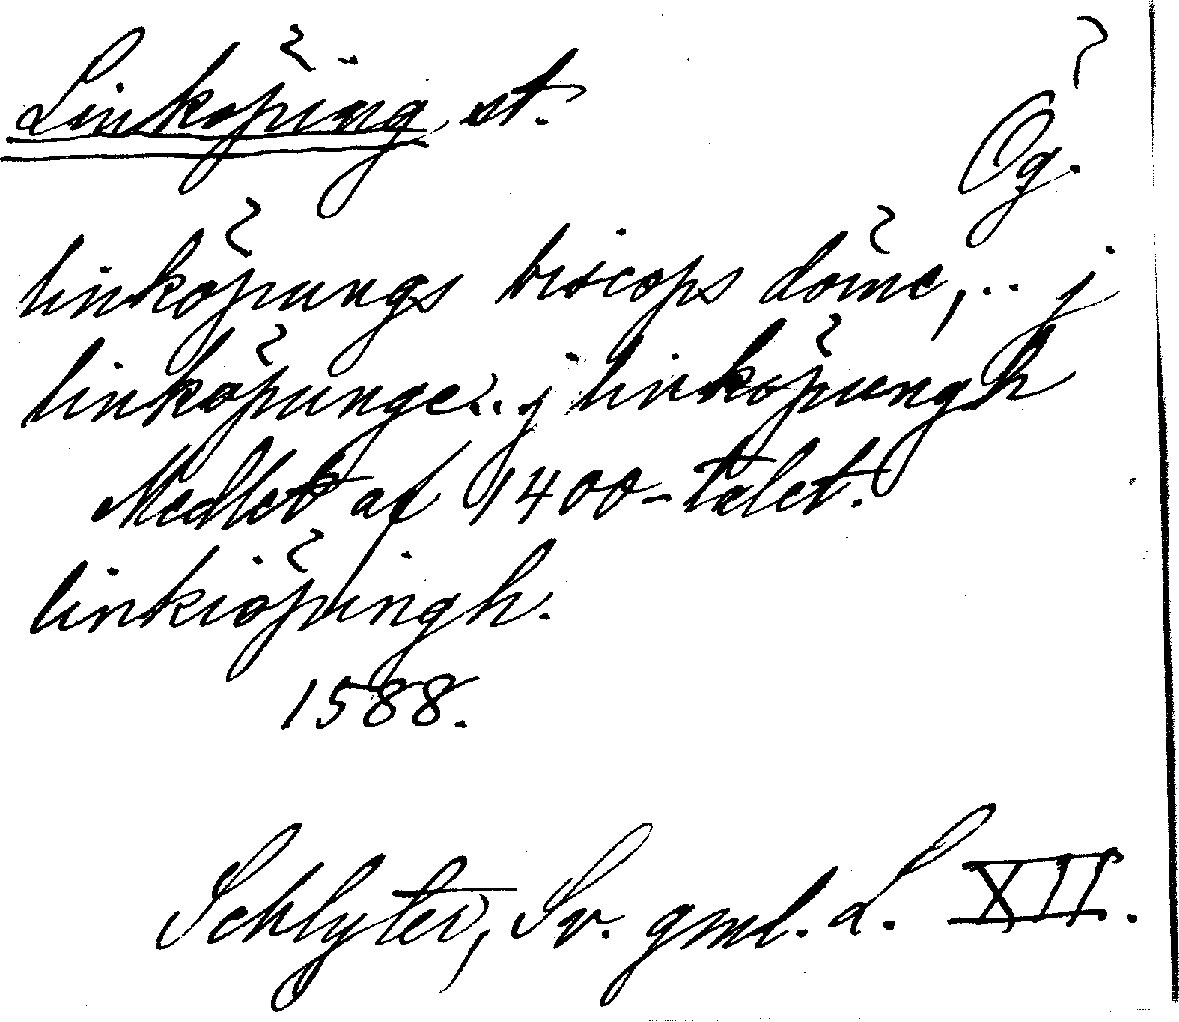 Linköping, st.
Ög.
linköpungs biscops döme, .. j
linköpunge .. j linköpungh
Medlet af 1400-talet.
linkiöpingh.
1588.
Schlyter, Sv. gml. L. XII.